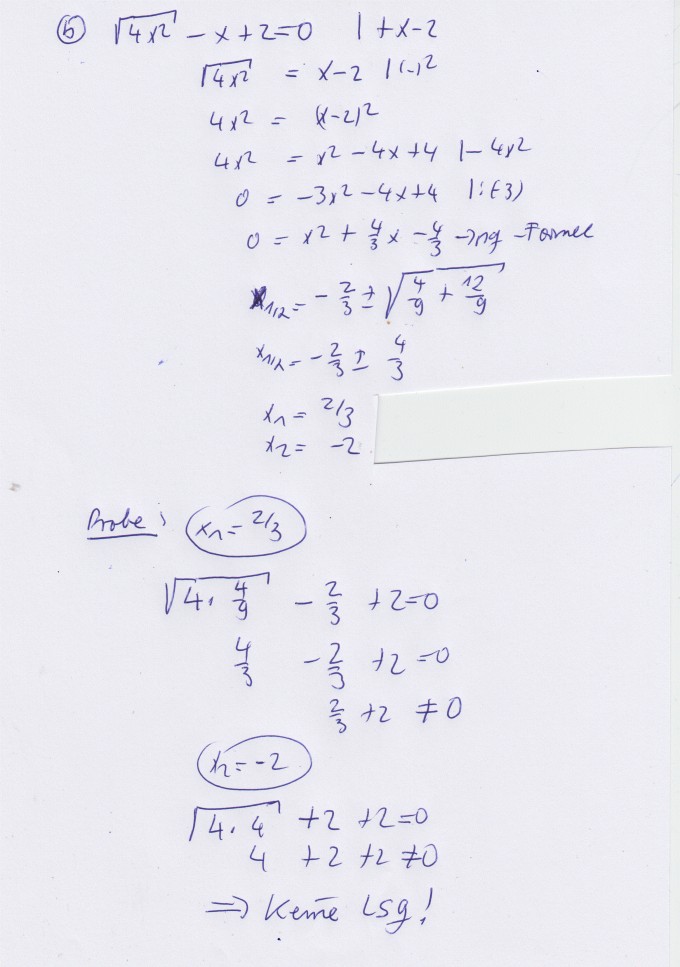 b) √4x² - x + 2 = 0 | + x - 2
√4x² = x - 2 | (-)²
4x² = (x-2)²
4x² = x² - 4x + 4 | - 4x²
0 = -3x² - 4x + 4 | : (-3)
0 = x² + 4/3 x - 4/3 → pq-Formel
x1/2 = - 2/3 ± √4/9 + 12/9
x1/2 = - 2/3 ± 4/3
x1 = 2/3
x2 = -2
Probe: x1 = 2/3
√4 · 4/9 - 2/3 + 2 = 0
4/3 - 2/3 + 2 = 0
2/3 + 2 ≠ 0
x2 = -2
√4 · 4 + 2 + 2 = 0
4 + 2 + 2 ≠ 0
=> Keine Lsg!